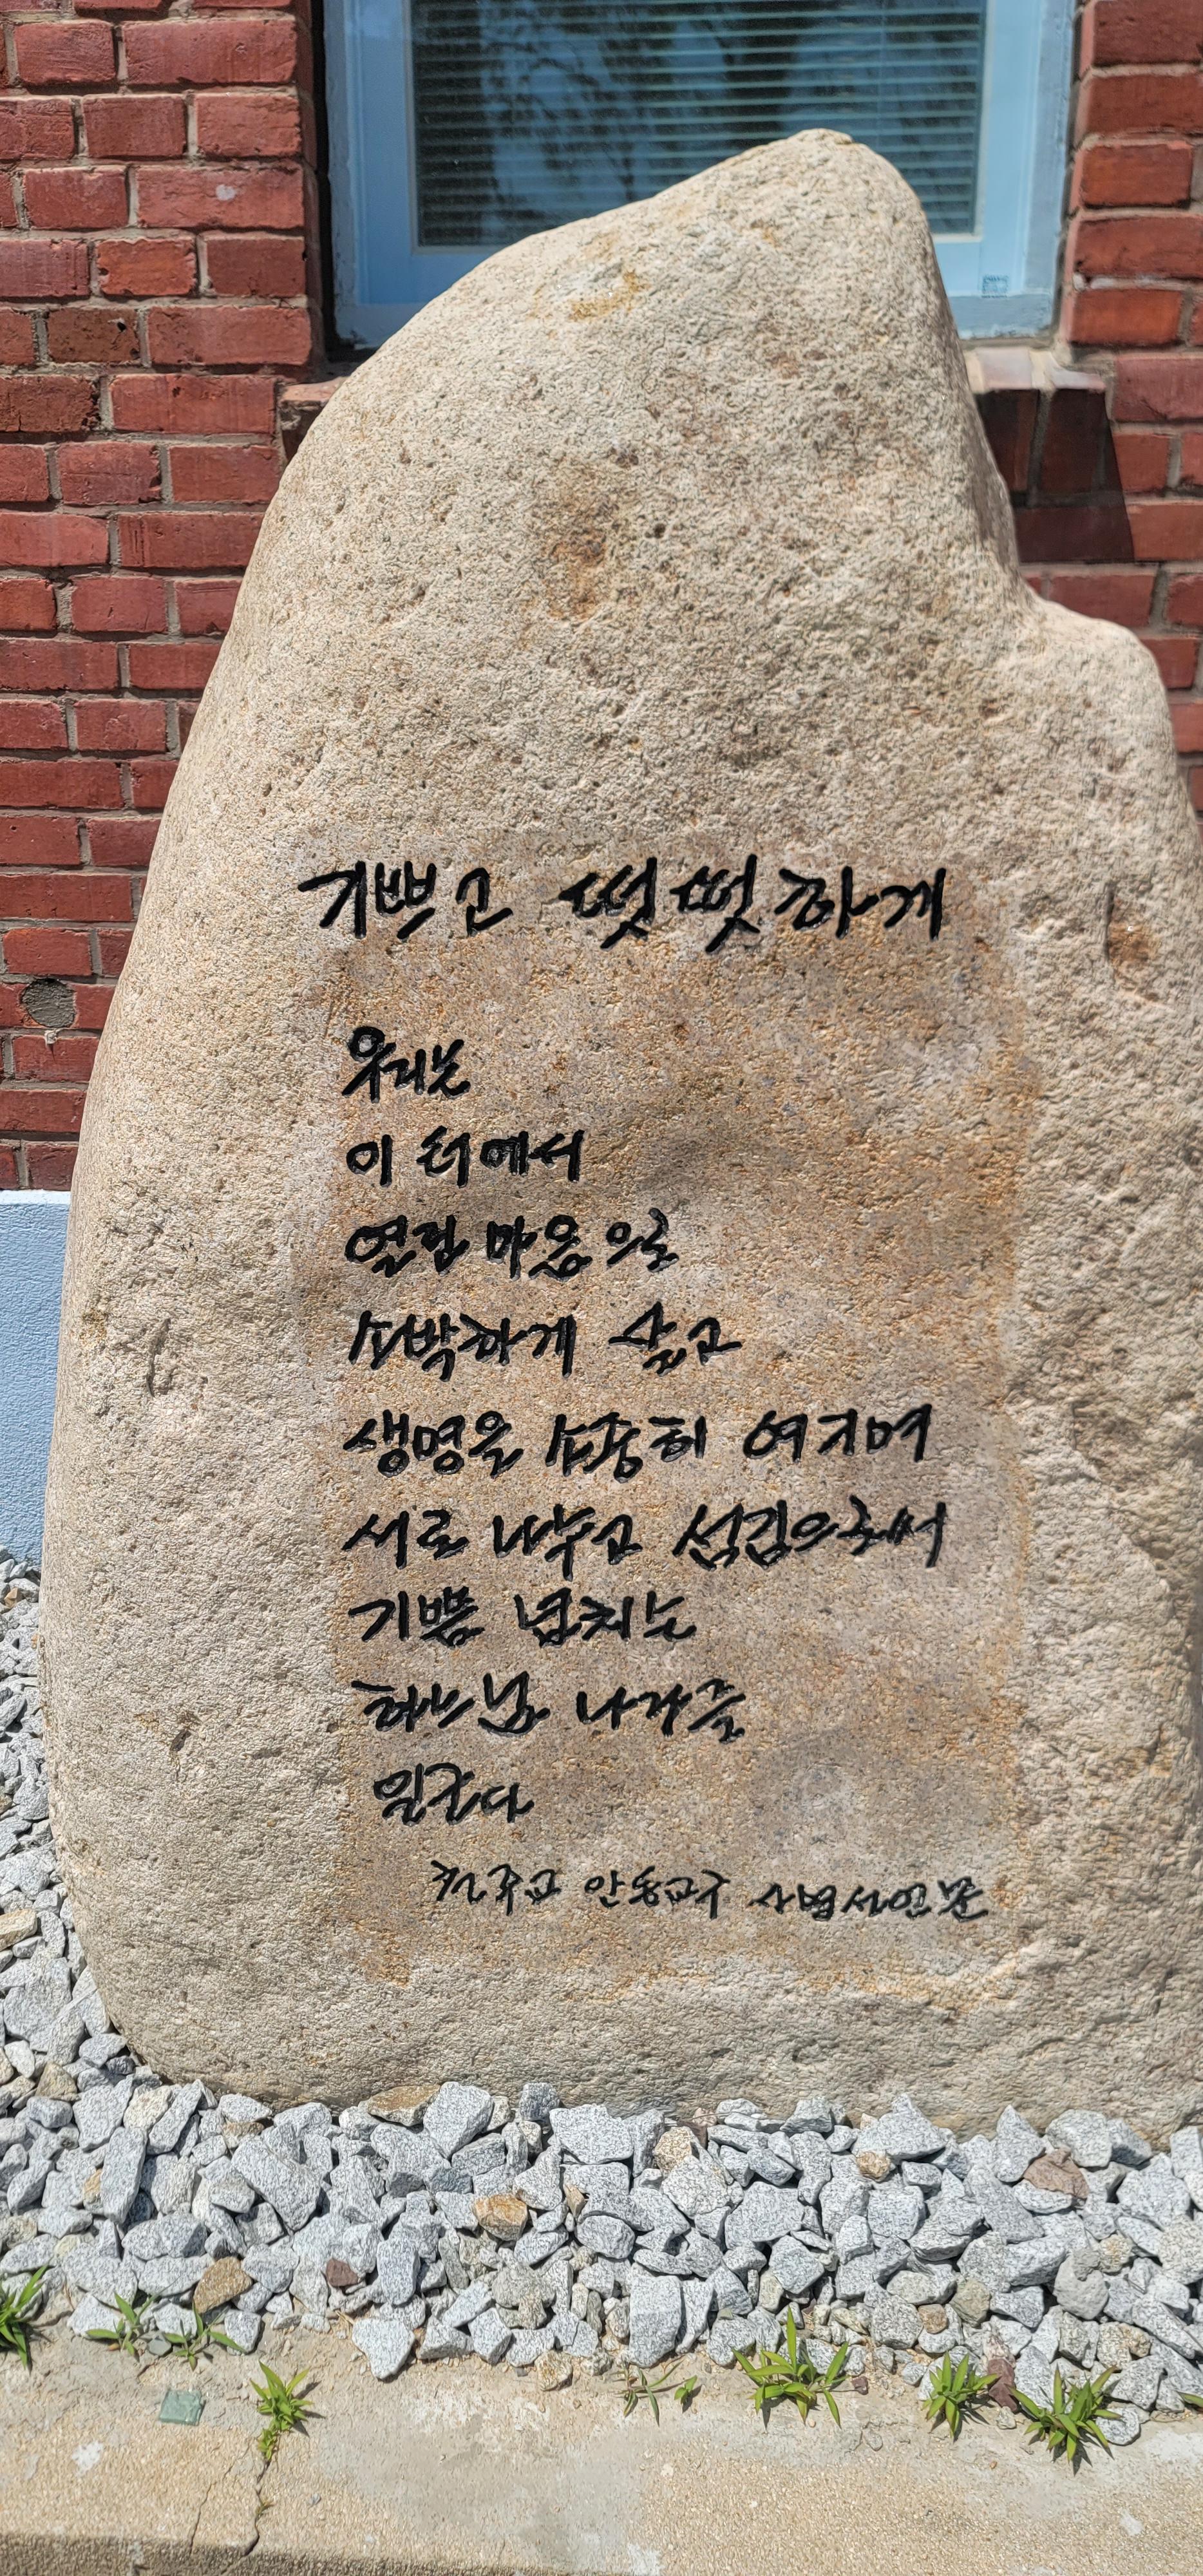 기쁘고 떳떳하게
우리는
이 터에서
열린 마음으로
소박하게 살고
생명을 소중히 여기며
서로 나누고 섬김으로써
기쁨 넘치는
하느님 나라를
일군다
천주교 안동교구 사명선언문